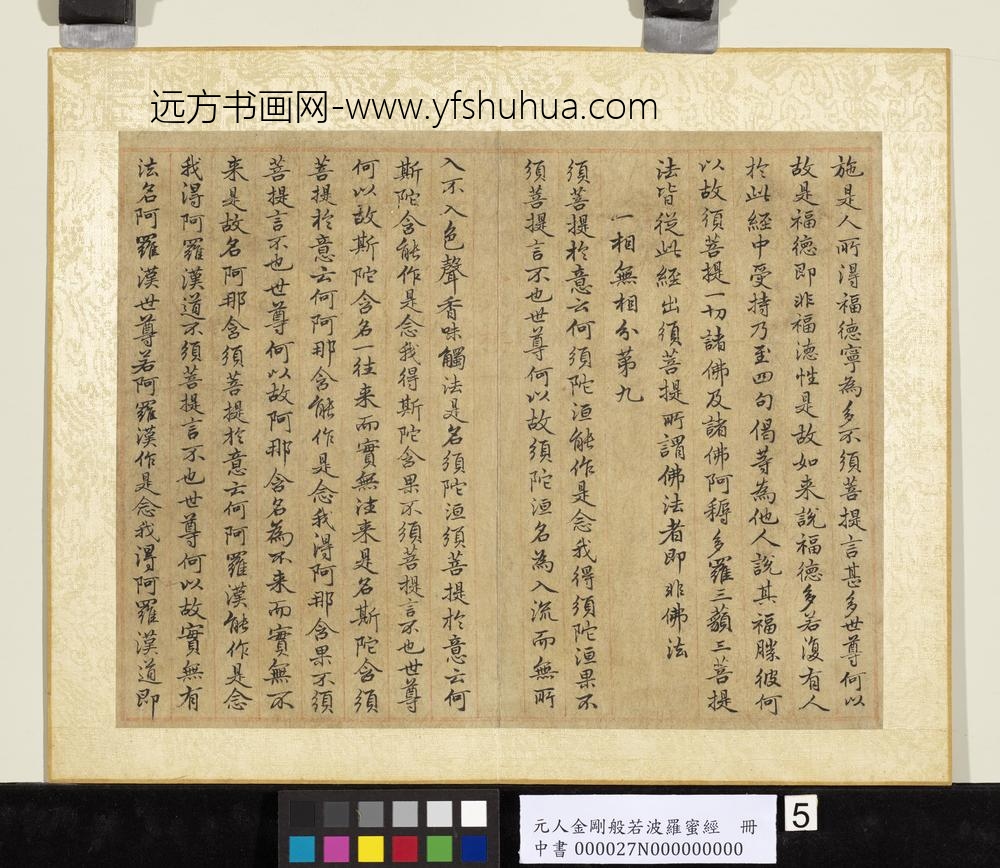 远方书画网-www.yfshuhua.com
施是人所得福德寧為多不須菩提言甚多世尊何以
故是福德即非福德性是故如来說福德多若復有人
於此經中受持乃至四句偈等為他人說其福勝彼何
以故須菩提一切諸佛及諸佛阿耨多羅三藐三菩提
法皆從此經出須菩提所謂佛法者即非佛法
一相無相分第九
須菩提於意云何須陀洹能作是念我得須陀洹果不
須菩提言不也世尊何以故須陀洹名為入流而無所
入不入色聲香味觸法是名須陀洹須菩提於意云何
斯陀含能作是念我得斯陀含果不須菩提言不也世尊
何以故斯陀含名一往来而實無往来是名斯陀含須
菩提於意云何阿那含能作是念我得阿那含果不須
菩提言不也世尊何以故阿那含名為不来而實無不
来是故名阿那含須菩提於意云何阿羅漢能作是念
我得阿羅漢道不須菩提言不也世尊何以故實無有
法名阿羅漢世尊若阿羅漢作是念我得阿羅漢道即
元人金剛般若波羅蜜經 冊
中書 000027N000000000
5